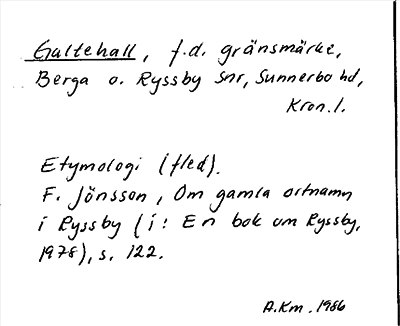 Galtehall, f.d. gränsmärke,
Berga o. Ryssby snr, Sunnerbo hd,
Kron.l.
Etymologi (fled).
F. Jönsson, Om gamla ortnamn
i Ryssby (i: En bok om Ryssby,
1978), s. 122.
A.Km. 1986